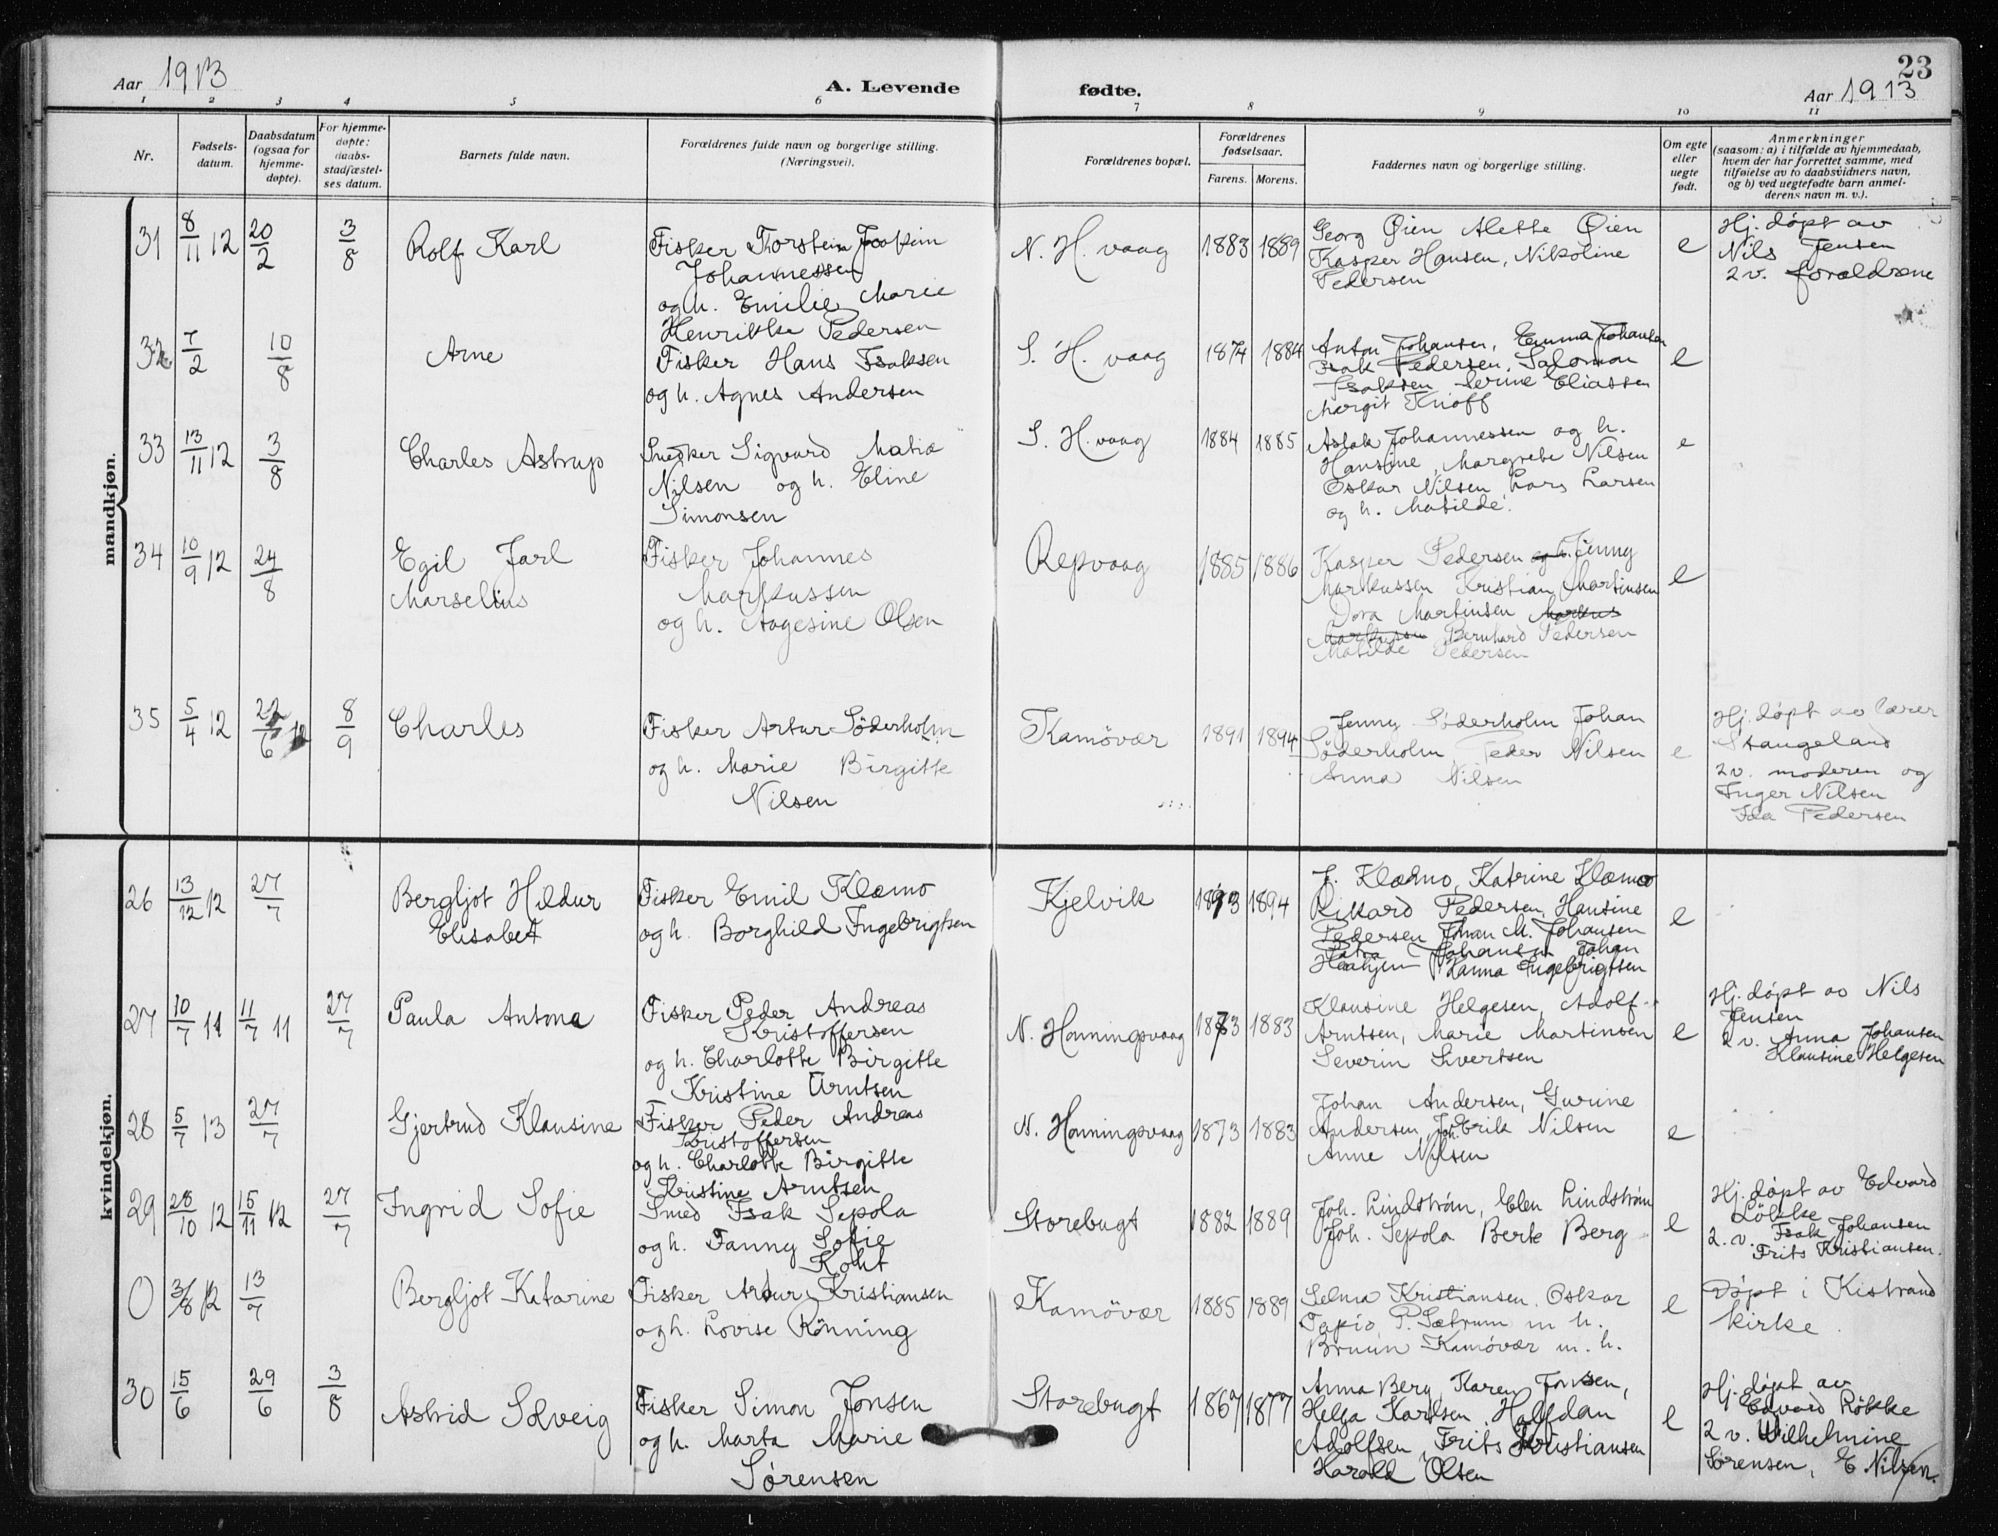 Aar 1913
A. Levende
fødte.
23
Aar 1913
1 2 3 4 5 6 7 8 9 10 11
Nr.
Fødsels-
datum.
Daabsdatum
(ogsaa for
hjemme-
døpte).
For hjemme-
døpte:
daabs-
stadfæstel-
ses datum.
Barnets fulde navn.
Forældrenes fulde navn og borgerlige stilling.
(Næringsvei).
Forældrenes bopæl.
Forældrenes
fødselsaar.
Farens. Morens.
Faddernes navn og borgerlige stilling.
Om egte
eller
uegte
født.
Anmerkninger
(saasom: a) i tilfælde av hjemmedaab,
hvem der har forrettet samme, med
tilføielse av to daabsvidners navn,
og b) ved uegtefødte barn anmel-
derens navn m. v.).
mandkjøn.
31 8/11 12 20/2 3/8 Rolf Karl
Fisker Torstein Joakim
Johannessen
og h. Emilie Marie
Henrikke Pedersen
N. H. vaag 1883 1889
Georg Øien Alette Øien
Kasper Hansen, Nikoline
Pedersen
e
Hj. døpt av
Nils Jensen
2 v. forældrene
32 7/2 10/8 Arne
Fisker Hans Isaksen
og h. Agnes Andersen
S. H. vaag 1874 1884
Anton Johansen, Emma Johansen
Isak Pedersen, Salomon
Isaksen Serine Eliassen
Margit Knoff
e
33 13/11 12 3/8 Charles Astrup
Snedker Sigvard Matia
Nilsen og h. Eline
Simonsen
S. H. vaag 1884 1885
Aslak Johannessen og h.
Hansine, Margrete Nilsen
Oskar Nilsen, Lars Larsen
og h. Matilde.
e
34 10/9 12 24/8 Egil Jarl
Marselius
Fisker Johannes
Markussen
og h. Aagesine Olsen
Repvaag 1885 1886
Kasper Pedersen og h. Jenny
Markussen Kristian Martinsen
Dora Martinsen Markus
Markussen Bernhard Pedersen
Matilde Pedersen
e
35 5/4 12 22/6 12 8/9 Charles
Fisker Artur Söderholm
og h. Marie Birgitte
Nilsen
Kamövær 1891 1894
Jenny Söderholm Johan
Söderholm Peder Nilsen
Anna Nilsen
e
Hj. døpt av lærer
Stangeland
2 v. moderen og
Inger Nilsen
Ida Pedersen
kvindekjøn.
26 13/12 12 27/7 Bergljot Hildur
Elisabet
Fisker Emil Klæmo
og h. Borghild Ingebrigtsen
Kjelvik 1893 1894
J. Klæmo, Katrine Klæmo
Rikard Pedersen, Hansine
Pedersen Johan M. Johansen
Petra Johansen Johan
Hanna Ingebrigtsen
e
27 10/7 11 11/7 11 27/7 Paula Antona
Fisker Peder Andreas
Kristoffersen
og h. Charlotte Birgitte
Kristine Arntsen
N. Honningsvaag 1873 1883
Klausine Helgesen, Adolf
Arntsen, Marie Martinsen
Severin Sivertsen
e
Hj. døpt av Nils
Jensen
2 v. Anna Johansen
Klausine Helgesen
28 5/7 13 27/7 Gjertrud Klausine
Fisker Peder Andreas
Kristoffersen
og h. Charlotte Birgitte
Kristine Arntsen
N. Honningsvaag 1873 1883
Johan Andersen, Gurine
Andersen, Joh. Erik Nilsen
Anne Nilsen
e
29 28/10 12 15/11 12 27/7 Ingrid Sofie
Smed Isak Sepola
og h. Fanny Sofie
Koht
Storebugt 1882 1889
Joh. Lindström, Elen Lindström
Joh. Sepola Berte Berg
e
Hj. døpt av Edvard
Løkke
2. v. Isak Johansen
Frits Kristiansen.
0 3/8 12 13/7 Bergljot Katarine
Fisker Artur Kristiansen
og h. Lovise Rönning
Kamövær 1885 1889
Selma Kristiansen. Oskar
Tapio, P. Sætrum m h.
Bruun Kamövær m. h.
e
Døpt i Kistrand
kirke.
30 15/6 29/6 3/8 Astrid Solveig
Fisker Simon Jonsen
og h. Marta Marie
Sørensen
Storebugt 1867 1877
Anna Berg, Karen Jonsen,
Helga Karlsen, Halfdan
Adolfsen, Frits Kristiansen
Harald Olsen
e
Hj. døpt av
Edvard Røkke
2 v. Wilhelmine
Sørensen, E Nilsen.